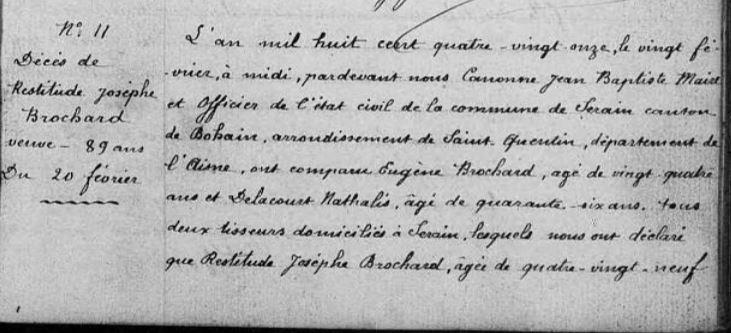 N° 11
Décès de
Restitude Josèphe
Brochard
veuve - 89 ans
Du 20 février
L'an mil huit cent quatre-vingt-onze, le vingt fé-
-vrier, à midi, pardevant nous Canonne Jean Baptiste Maire
et Officier de l'état civil de la commune de Serain canton
de Bohain, arrondissement de Saint-Quentin, département de
l'Aisne, ont comparu Eugène Brochard, agé de vingt-quatre
ans et Delacourt Nathalis, âgé de quarante-six ans, tous
deux tisseurs domiciliés à Serain, lesquels nous ont déclaré
que Restitude Josèphe Brochard, âgée de quatre-vingt-neuf